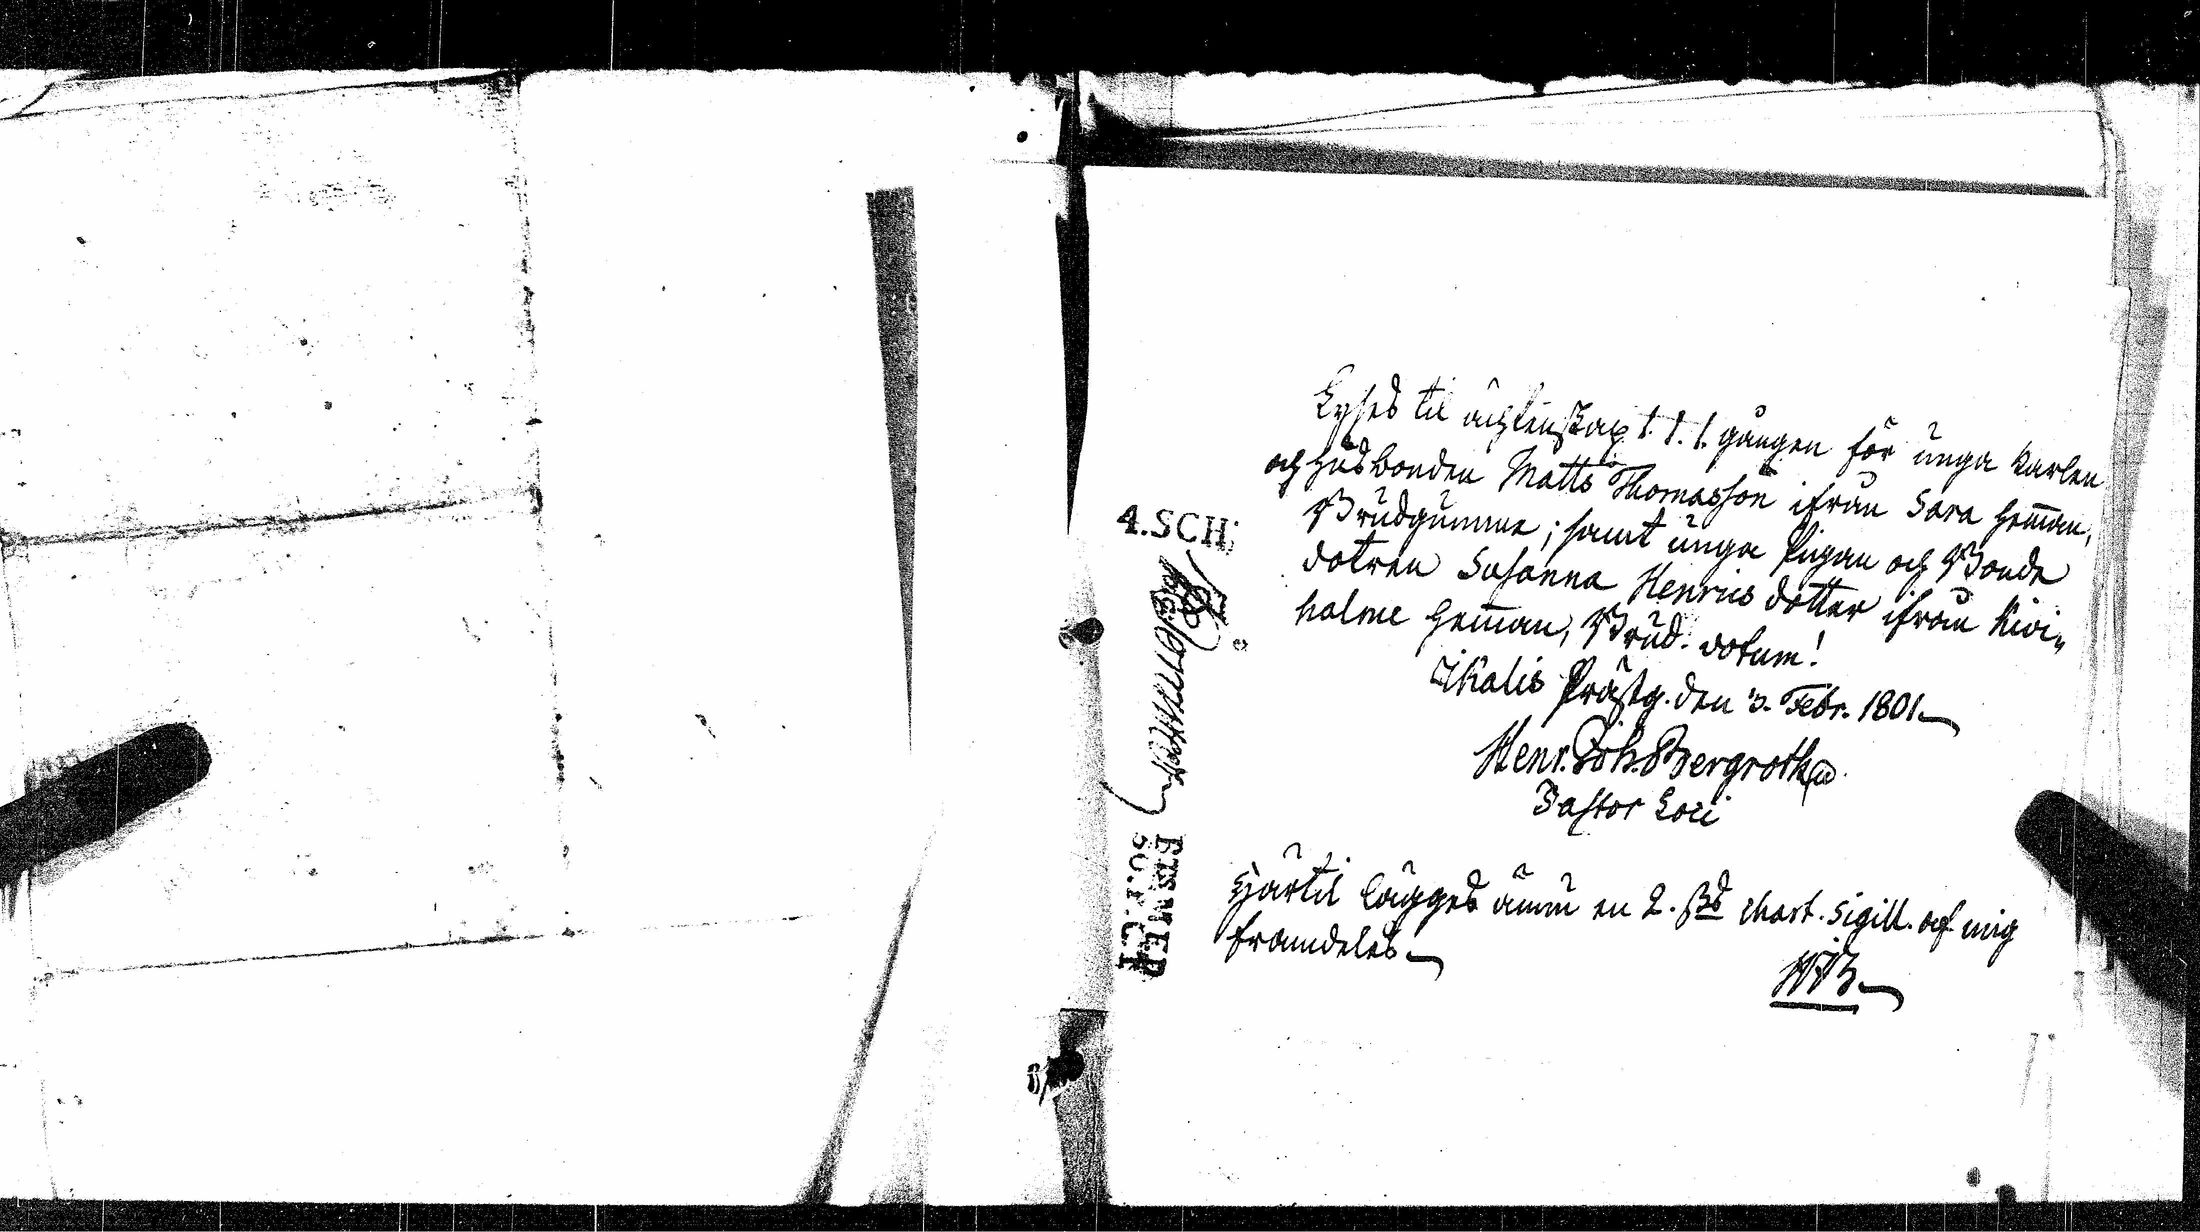 Lyses til ächtenskap 1. 1. 1. gången för unga karlen
och Husbonden Matts Thomasson ifrån Sara Hem̄an,
Brudgumme; samt unga Pigan och Bonde
dotren Susanna Henrics dotter ifrån Kivi„
holme Hem̄an, Brud. datum!
Ikalis Prästg. den 3. Febr. 1801.
Henr. Joh. Bergroth
Pastor Loci
Härtil lägges ännu en 2. ßds Chart. Sigill. af mig
framdeles.
HJB.
4.SCH: